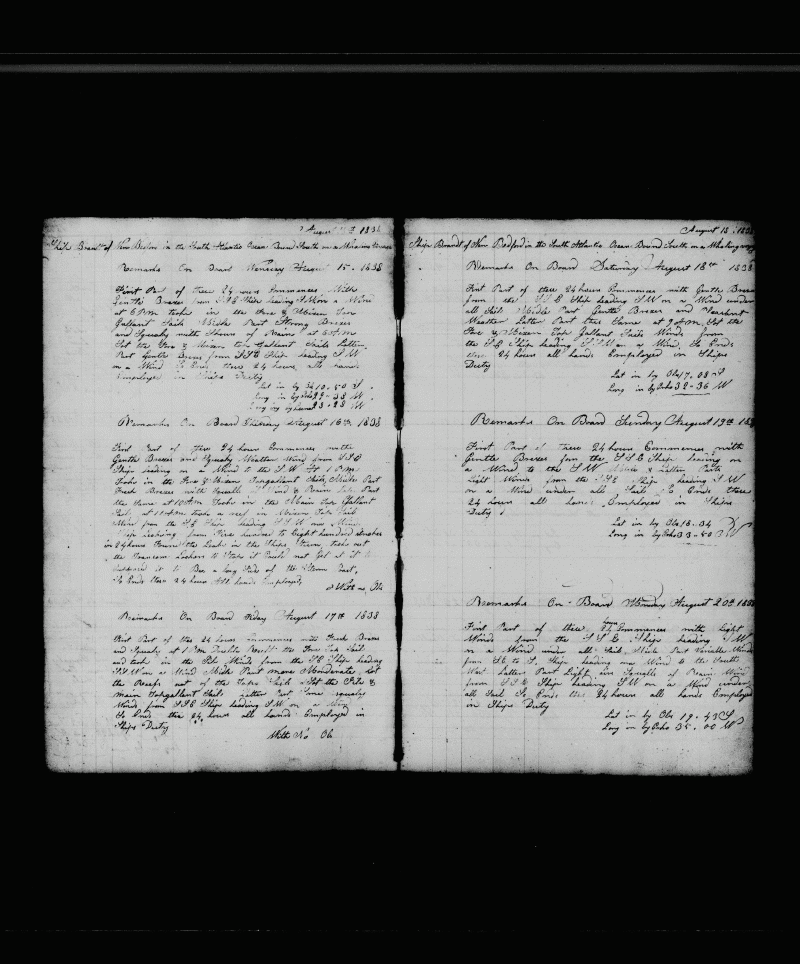 August 1838
Ship Brandt of New Bedford in the South Atlantic Ocean Bound South on a Whaling
Remarks On Board August 15 - 1838
First Part of these 24 hours Commences With
Gentle Breezes from SSE Ship heading SW on a Wind
at 6 PM took in the Fore & Mizen Top
Gallant Sails Middle Part Strong Breezes
and Squaly with Showers of Rain at 6 AM
Set the Fore & Mizen Top Gallant Sails Latter
Part Gentle Breezes from SSE Ship heading SW
on a Wind So Ends these 24 hours All hands
Employed in Ships Duty
Lat in by Obs 10-50 S
Long in by
Long in by
Remarks On Board August 16th 1838
First Part of these 24 hours Commences with
Gentle Breezes and Squaly Weather Wind from SSE
Ship heading on a Wind to the SW At 1 PM
Took in the Fore & Mizen Topgallant Sails Middle Part
Fresh Breezes with Squalls of Wind & Rain Latter Part
the Same at 10 AM Took in the Main Top Gallant
Sail at took a reef in Mizen Top Sail
Wind from the SE Ship heading SSW on a Wind
Ship Leaking from Five hundred to Eight hundred strokes
in 24 hours Found the Leak in the Ships Stern took out
the Transom to Stop it Could not Get at it
Supposed it to Bee a long Side of the Stern Post
So Ends these 24 hours All hands Employed
No Obs
Remarks On Board Friday August 17th 1838
First Part of the 24 hours Commences with Fresh Breezes
and Squaly at 1 PM Double Reefed the Fore Top Sail
and took in the Wind from the SE Ship heading
SSW on a Wind Middle Part more Moderate Let
the Reefs out of the Top Sails & Set the &
Main Topgallant Sails Latter Part Some Squaly
Winds from SSE Ship heading SW on a Wind
So Ends these 24 hours all hands Employed in
Ships Duty
With No Ob
August 18: 1838
Ship Brandt of New Bedford in the South Atlantic Ocean Bound South on a Whaling voy
Remarks On Board Saturday August 18th 1838
First Part of these 24 hours Commences with Gentle Breezes
from the SSE Ship heading SW on a Wind under
all Sail Middle Part Gentle Breezes and Pleasant
Weather Latter Part the Same at 9 AM Set the
Fore & Mizen Top Gallant Sails Winds from
the SSE Ship heading SW on a Wind So Ends
these 24 hours all hands Employed in Ships
Duty
Lat in by Obs 17-08 S
Long in by Crho 32-36 W
Remarks On Board Sunday August 19th 183
First Part of these 24 hours Commences with
Gentle Breezes from the SSE Ship heading on
a Wind to the SW Middle & Latter Parts
Light Winds from the SSE Ship heading SW
on a Wind under all Sail So Ends these
24 hours all hands Employed in Ships
Duty
Lat in by Obs 18-34 S
Long in by Crho 33-50 W
Remarks On Board Monday August 20th 1838
First Part of these 24 hours Commences with Light
Winds from the SSE Ship heading SW
on a Wind under all Sail Middle Part Variable Winds
from SE to S Ship heading on a Wind to the South
West Latter Part Light Airs Squalls of Rain Wind
from SSE Ship heading SW on a Wind under
all Sail So Ends these 24 hours all hands Employed
in Ships Duty
Lat in by Obs 19-43 S
Long in by Crho 35-00 W